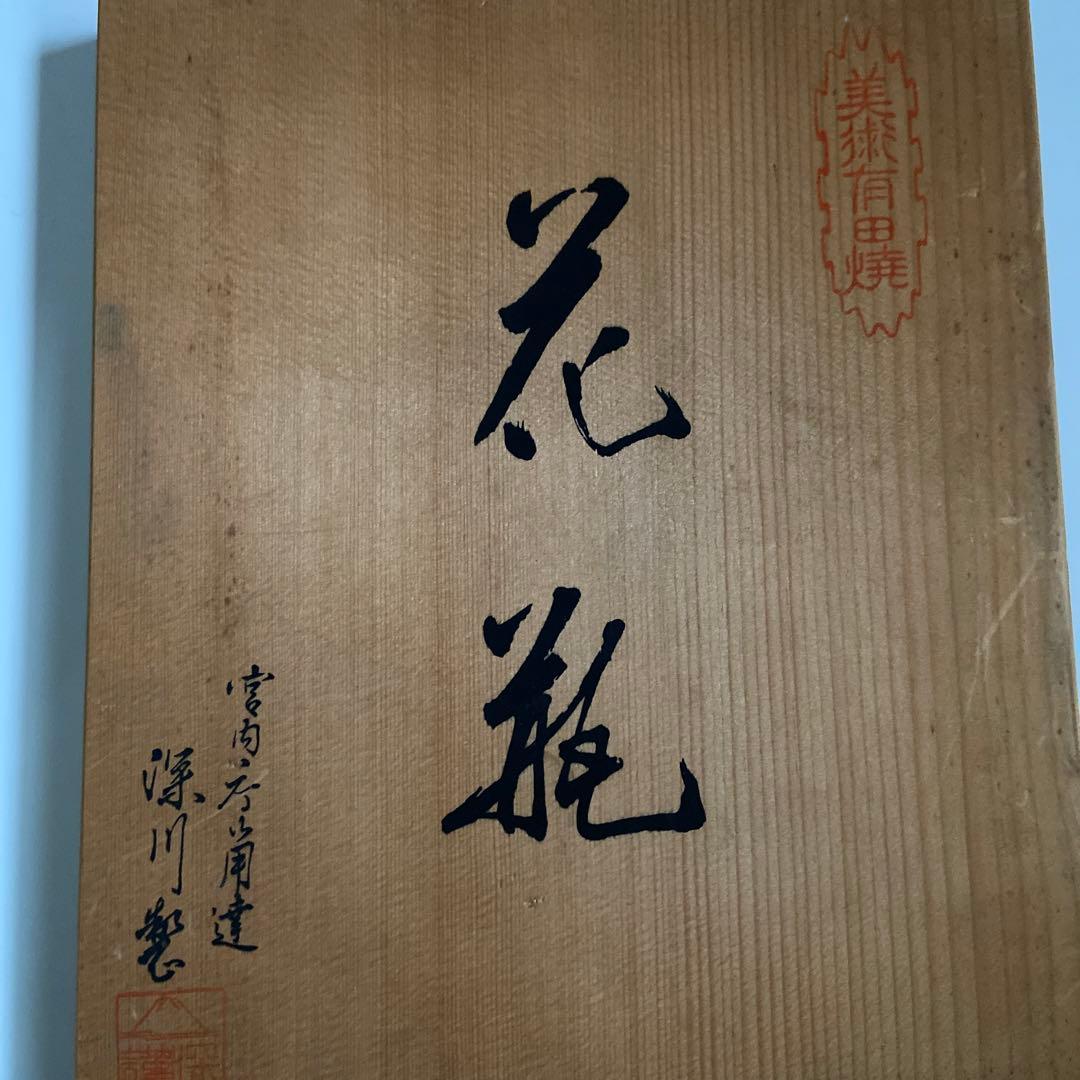 美術有田燒
花瓶
宮内庁御用達
深川製
謹